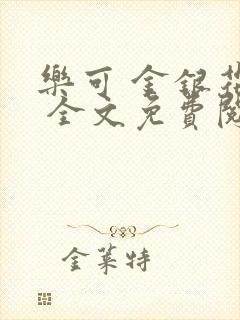 樂可 金銀花
全文免費閱
金萊特